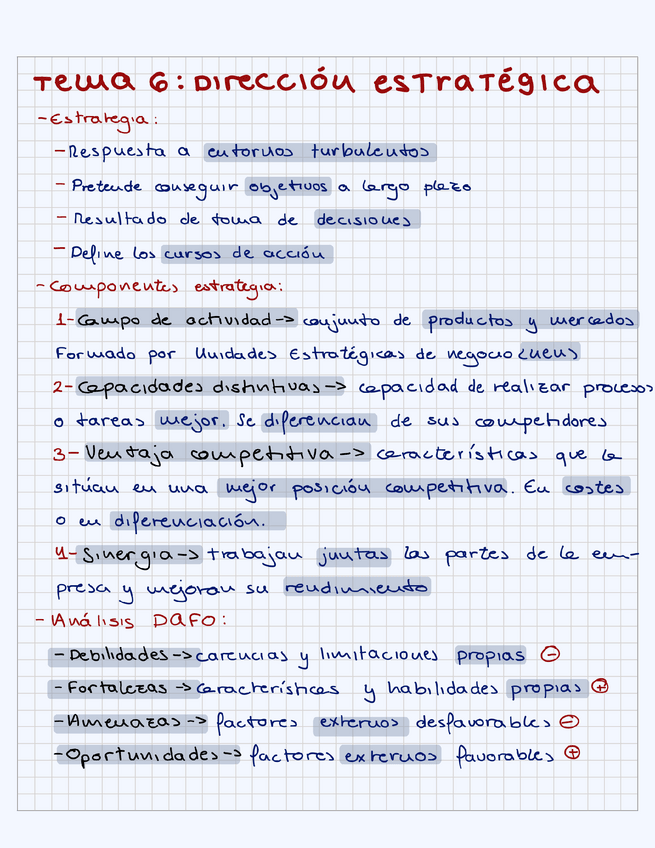 Tema 6: Dirección estratégica
- Estrategia:
- Respuesta a entornos turbulentos
- Pretende conseguir objetivos a largo plazo
- Resultado de toma de decisiones
- Define los cursos de acción
- Componentes estrategia:
1- Campo de actividad -> conjunto de productos y mercados
Formado por Unidades Estratégicas de negocio
2- Capacidades distintivas -> capacidad de realizar procesos
o tareas mejor. Se diferencian de sus competidores
3- Ventaja competitiva -> características que la
sitúan en una mejor posición competitiva. En costes
o en diferenciación.
4- Sinergia -> trabajan juntas las partes de la em-
presa y mejoran su rendimiento
- Análisis DAFO:
- Debilidades -> carencias y limitaciones propias ⊖
- Fortalezas -> características y habilidades propias ⊕
- Amenazas -> factores externos desfavorables ⊖
- Oportunidades -> factores externos favorables ⊕